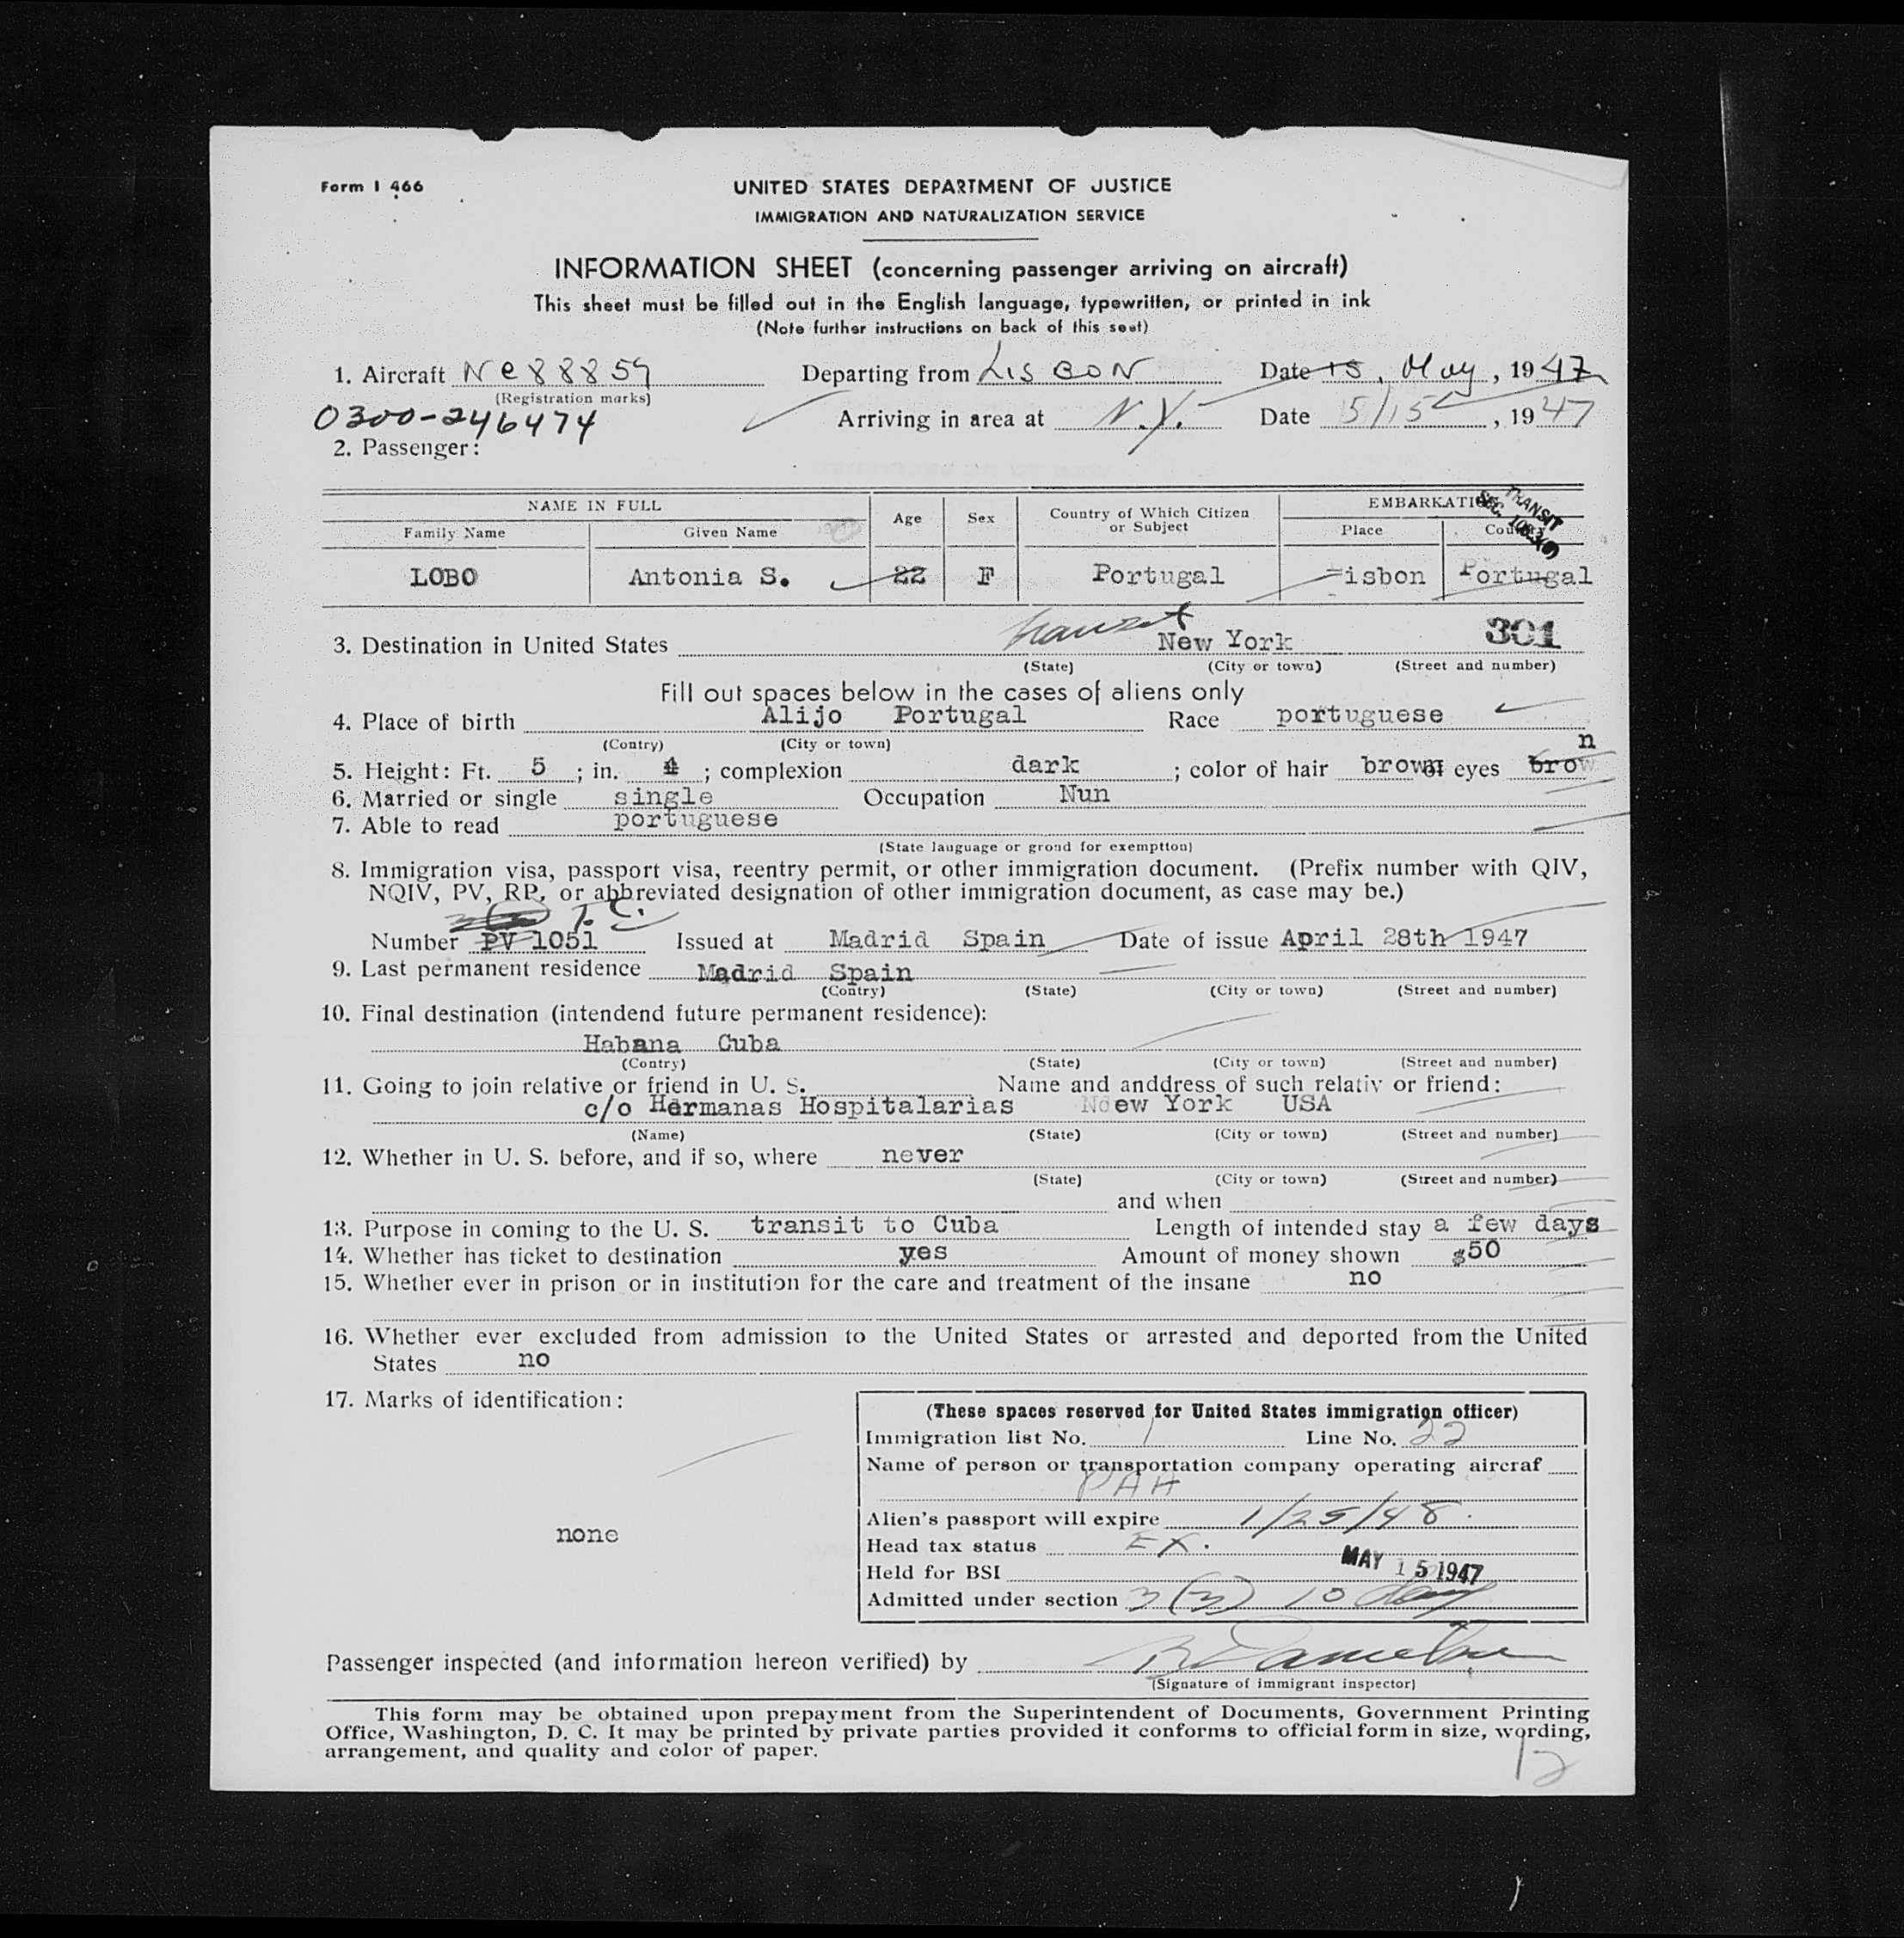 Form I 466
UNITED STATES DEPARTMENT OF JUSTICE
IMMIGRATION AND NATURALIZATION SERVICE
INFORMATION SHEET (concerning passenger arriving on aircraft)
This sheet must be filled out in the English language, typewritten, or printed in ink
(Note further instructions on back of this seet)
1. Aircraft Nc88859 Departing from LISBON Date 15, May, 1947
(Registration marks)
0300-246474 Arriving in area at N.Y. Date 5/15, 1947
2. Passenger:
NAME IN FULL Age Sex Country of Which Citizen or Subject EMBARKATION
Family Name Given Name Place Country
TRANSIT
SEC.
LOBO Antonia S. 22 F Portugal isbon Portugal
3. Destination in United States transit New York 301
(State) (City or town) (Street and number)
Fill out spaces below in the cases of aliens only
4. Place of birth Alijo Portugal Race portuguese
(Contry) (City or town)
n
5. Height: Ft. 5; in. 4; complexion dark; color of hair brown eyes brow
6. Married or single single Occupation Nun
7. Able to read portuguese
(State lauguage or grond for exemption)
8. Immigration visa, passport visa, reentry permit, or other immigration document. (Prefix number with QIV,
NQIV, PV, RP, or abbreviated designation of other immigration document, as case may be.)
T. C.
Number PV 1051 Issued at Madrid Spain Date of issue April 28th 1947
9. Last permanent residence Madrid Spain
(Contry) (State) (City or town) (Street and number)
10. Final destination (intendend future permanent residence):
Habana Cuba
(Contry) (State) (City or town) (Street and number)
11. Going to join relative or friend in U. S. Name and anddress of such relativ or friend:
c/o Hermanas Hospitalarias New York USA
(Name) (State) (City or town) (Street and number)
12. Whether in U. S. before, and if so, where never
(State) (City or town) (Street and number)
and when
13. Purpose in coming to the U. S. transit to Cuba Length of intended stay a few days
14. Whether has ticket to destination yes Amount of money shown $50
15. Whether ever in prison or in institution for the care and treatment of the insane no
16. Whether ever excluded from admission to the United States or arrested and deported from the United
States no
17. Marks of identification:
none
(These spaces reserved for United States immigration officer)
Immigration list No. 1 Line No. 22
Name of person or transportation company operating aircraf
PAA
Alien's passport will expire 1/25/48.
Head tax status EX.
MAY 15 1947
Held for BSI
Admitted under section 3(3) 10 days
Passenger inspected (and information hereon verified) by
(Signature of immigrant inspector)
This form may be obtained upon prepayment from the Superintendent of Documents, Government Printing
Office, Washington, D. C. It may be printed by private parties provided it conforms to official form in size, wording,
arrangement, and quality and color of paper.
12